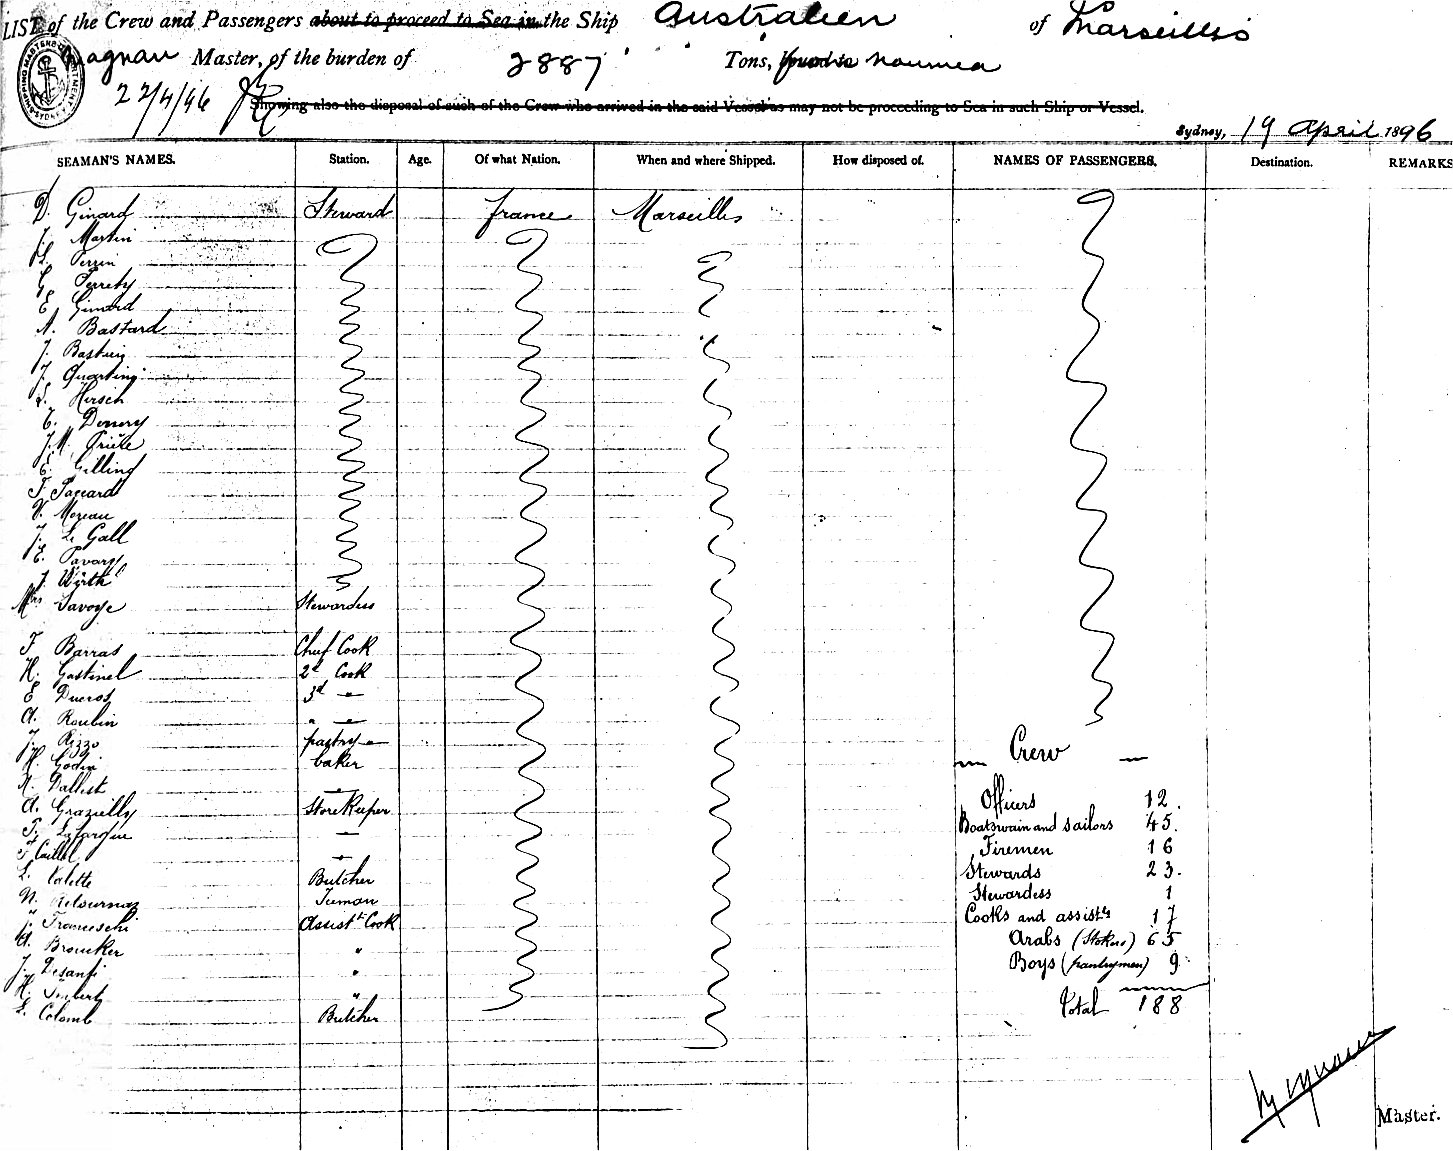 LIST of the Crew and Passengers about to proceed to Sea in the Ship Australien of Marseilles
Magnan Master, of the burden of 2887 Tons, from to Noumea
22/4/96 Showing also the disposal of such of the Crew who arrived in the said Vessel as may not be proceeding to Sea in such Ship or Vessel.
Sydney, 19 April 1896
SEAMAN'S NAMES. Station. Age. Of what Nation. When and where Shipped. How disposed of. NAMES OF PASSENGERS. Destination. REMARKS
D. Ginard Steward France Marseilles
J. Martin
L. Perrin
G. Perrety
E. Girard
A. Bastard
J. Bastuig
J. Quartini
L. Hirsch
E. Donory
J.M. Prieze
E. Gilling
F. Paccard
V. Moreau
J. Le Gall
E. Pavary
J. Wirth
Mrs Savoye Stewardess
F. Barras Chief Cook
H. Gastinel 2d Cook
E Ducros 3d "
A. Roubin " "
J. Rizzo pastry "
H. Godin baker
A. Dallest "
A. Grazielly StoreKeeper
P. Lafargue "
F. Caillol "
L. Valette Butcher
N. Retournaz Iceman
J. Franceschi Assist't Cook
A. Broucker "
J. Desanti "
H. Imbert "
L. Colomb Butcher
Crew
Officers 12.
Boatswain and sailors 45.
Firemen 16
Stewards 23.
Stewardess 1
Cooks and assists 17
Arabs (Stokers) 65
Boys (pantrymen) 9
Total 188
Magnan
Master.